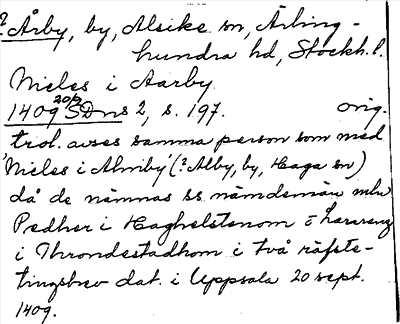 ? Årby, by, Alsike sn, Ärling-
hundra hd, Stockh. l.
Nieles i Aarby
1409 20/9 SDns 2, s. 197. orig.
trol. avses samma person som med
'Nieles i Almby' (? Alby, by, Haga sn)
då de nämnas ss nämdemän mbu
Pedher i Haghelstenom i Larareng
i Throndestadhom i två räfste-
tingsbrev dat. i Uppsala 20 sept.
1409.